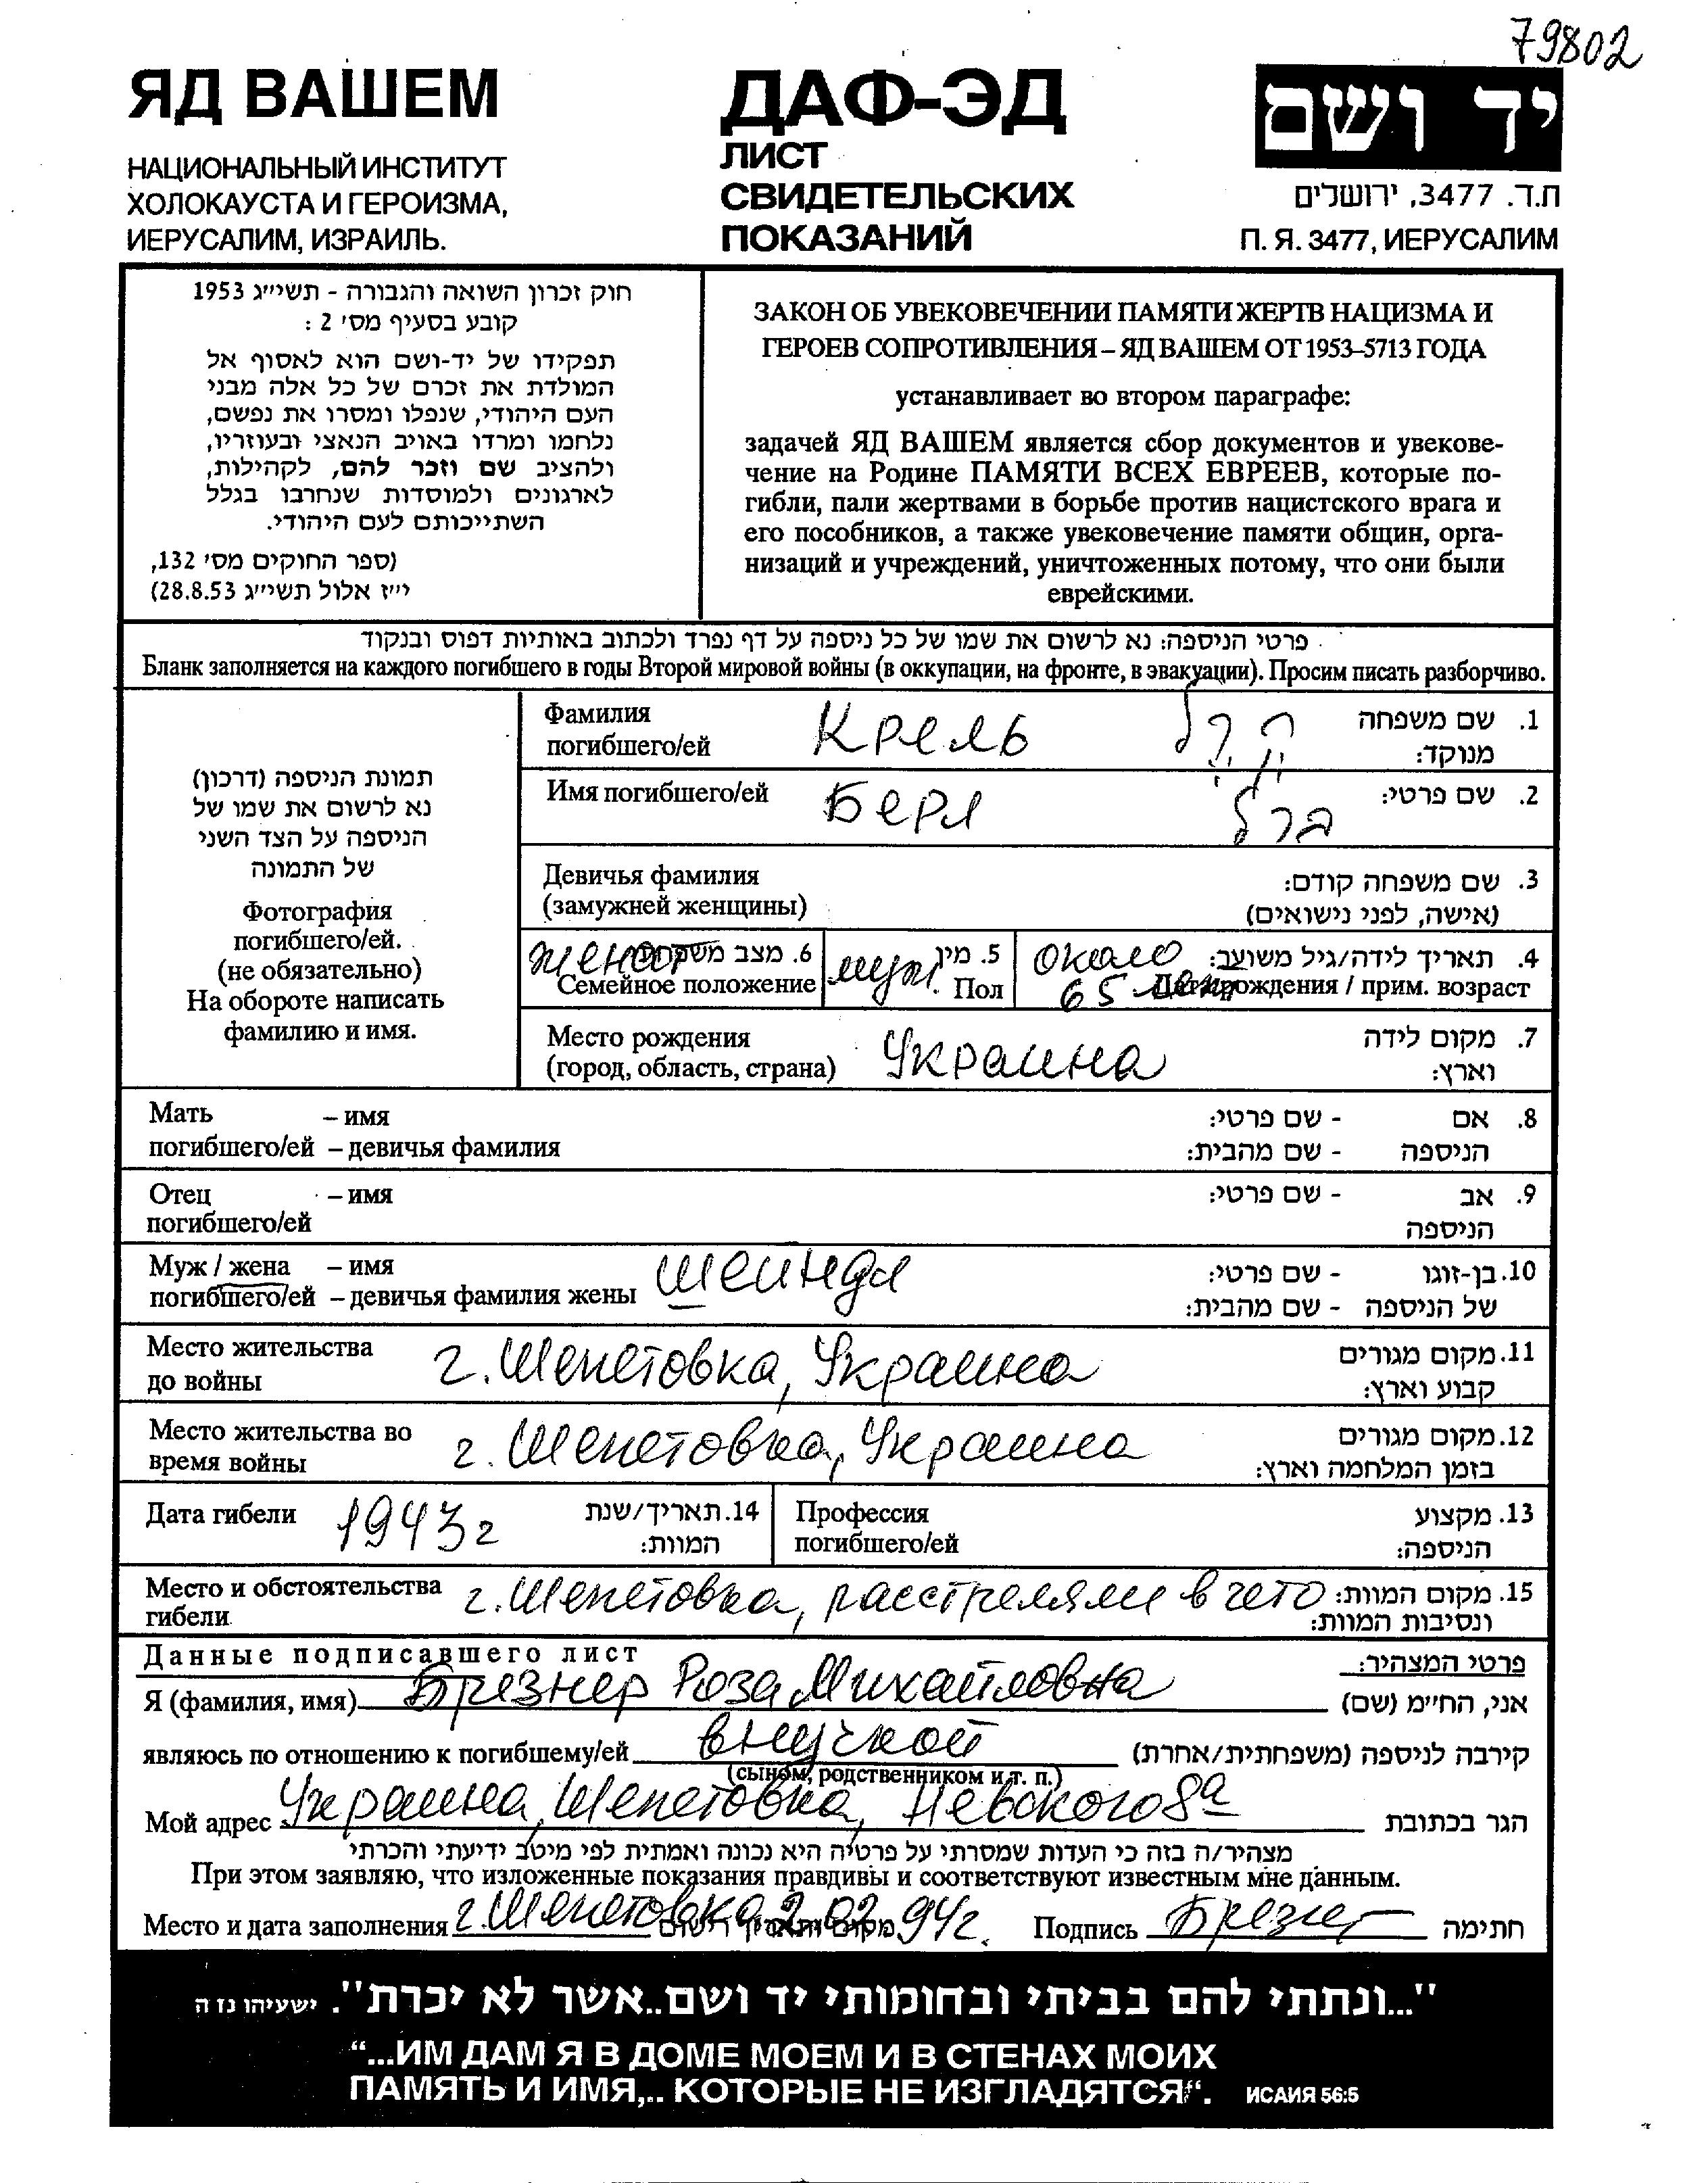 79802
ЯД ВАШЕМ
НАЦИОНАЛЬНЫЙ ИНСТИТУТ
ХОЛОКАУСТА И ГЕРОИЗМА,
ИЕРУСАЛИМ, ИЗРАИЛЬ.
ДАФ-ЭД
ЛИСТ
СВИДЕТЕЛЬСКИХ
ПОКАЗАНИЙ
יד ושם
ת.ד. 3477, ירושלים
П. Я. 3477, ИЕРУСАЛИМ
חוק זכרון השואה והגבורה - תשי"ג 1953
קובע בסעיף מס' 2 :
תפקידו של יד-ושם הוא לאסוף אל
המולדת את זכרם של כל אלה מבני
העם היהודי, שנפלו ומסרו את נפשם,
נלחמו ומרדו באויב הנאצי ובעוזריו,
ולהציב שם וזכר להם, לקהילות,
לארגונים ולמוסדות שנחרבו בגלל
השתייכותם לעם היהודי.
(ספר החוקים מס' 132,
י"ז אלול תשי"ג 28.8.53)
ЗАКОН ОБ УВЕКОВЕЧЕНИИ ПАМЯТИ ЖЕРТВ НАЦИЗМА И
ГЕРОЕВ СОПРОТИВЛЕНИЯ – ЯД ВАШЕМ ОТ 1953–5713 ГОДА
устанавливает во втором параграфе:
задачей ЯД ВАШЕМ является сбор документов и увекове-
чение на Родине ПАМЯТИ ВСЕХ ЕВРЕЕВ, которые по-
гибли, пали жертвами в борьбе против нацистского врага и
его пособников, а также увековечение памяти общин, орга-
низаций и учреждений, уничтоженных потому, что они были
еврейскими.
פרטי הניספה: נא לרשום את שמו של כל ניספה על דף נפרד ולכתוב באותיות דפוס ובנקוד
Бланк заполняется на каждого погибшего в годы Второй мировой войны (в оккупации, на фронте, в эвакуации). Просим писать разборчиво.
תמונת הניספה (דרכון)
נא לרשום את שמו של
הניספה על הצד השני
של התמונה
Фотография
погибшего/ей.
(не обязательно)
На обороте написать
фамилию и имя.
Фамилия Крель קרל 1. שם משפחה
погибшего/ей מנוקד:
Имя погибшего/ей Берл ברל 2. שם פרטי:
Девичья фамилия 3. שם משפחה קודם:
(замужней женщины) (אישה, לפני נישואים)
женат 6. מצב משפחתי муж. 5. מין около 4. תאריך לידה/גיל משוער:
Семейное положение Пол 65 лет Дата рождения / прим. возраст
Место рождения Украина 7. מקום לידה
(город, область, страна) וארץ:
Мать – имя - שם פרטי: 8. אם
погибшего/ей – девичья фамилия - שם מהבית: הניספה
Отец – имя - שם פרטי: 9. אב
погибшего/ей הניספה
Муж / жена – имя Шейнда - שם פרטי: 10. בן-זוגו
погибшего/ей – девичья фамилия жены - שם מהבית: של הניספה
Место жительства г. Шепетовка, Украина 11. מקום מגורים
до войны קבוע וארץ:
Место жительства во г. Шепетовка, Украина 12. מקום מגורים
время войны בזמן המלחמה וארץ:
Дата гибели 1943 г 14. תאריך/שנת Профессия 13. מקצוע
המוות: погибшего/ей הניספה:
Место и обстоятельства г. Шепетовка, расстреляли в гето 15. מקום המוות:
гибели ונסיבות המוות:
Данные подписавшего лист פרטי המצהיר:
Я (фамилия, имя) Брезнер Роза Михайловна אני, החי"מ (שם)
являюсь по отношению к погибшему/ей внучкой קירבה לניספה (משפחתית/אחרת)
(сыном, родственником и т. п.)
Мой адрес Украина, Шепетовка, Невского 8а הגר בכתובת
מצהיר/ה בזה כי העדות שמסרתי על פרטיה היא נכונה ואמתית לפי מיטב ידיעתי והכרתי
При этом заявляю, что изложенные показания правдивы и соответствуют известным мне данным.
Место и дата заполнения г. Шепетовка 2.02.94г. מקום ותאריך רישום Подпись Брезнер חתימה
"...ונתתי להם בביתי ובחומותי יד ושם..אשר לא יכרת". ישעיהו נו ה
“...ИМ ДАМ Я В ДОМЕ МОЕМ И В СТЕНАХ МОИХ
ПАМЯТЬ И ИМЯ,.. КОТОРЫЕ НЕ ИЗГЛАДЯТСЯ“. ИСАИЯ 56:5